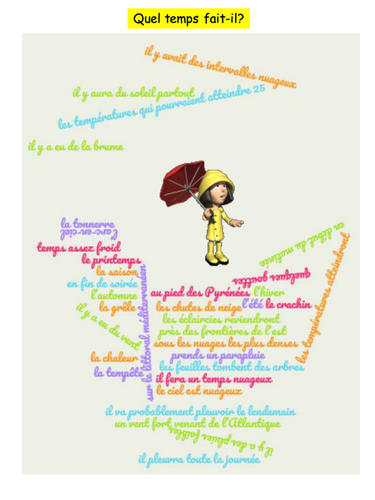 Quel temps fait-il?
il y avait des intervalles nuageux
il y aura du soleil partout
les températures qui pourraient atteindre 25
il y a eu de la brume
la tonnerre
l'arc-en-ciel
en début du matinée
temps assez froid
le printemps
la saison
quelques gouttes
en fin de soirée
au pied des Pyrénées
l'hiver
l'automne
la grêle
les chutes de neige
l'été
le crachin
les températures atteindront
il y a eu du vent
sur le littoral méditerranéen
les éclaircies reviendront
près des frontières de l'est
sous les nuages les plus denses
la chaleur
prends un parapluie
la tempête
les feuilles tombent des arbres
il fera un temps nuageux
le ciel est nuageux
il va probablement pleuvoir le lendemain
un vent fort venant de l'Atlantique
il y a des pluies faibles
il pleurra toute la journée